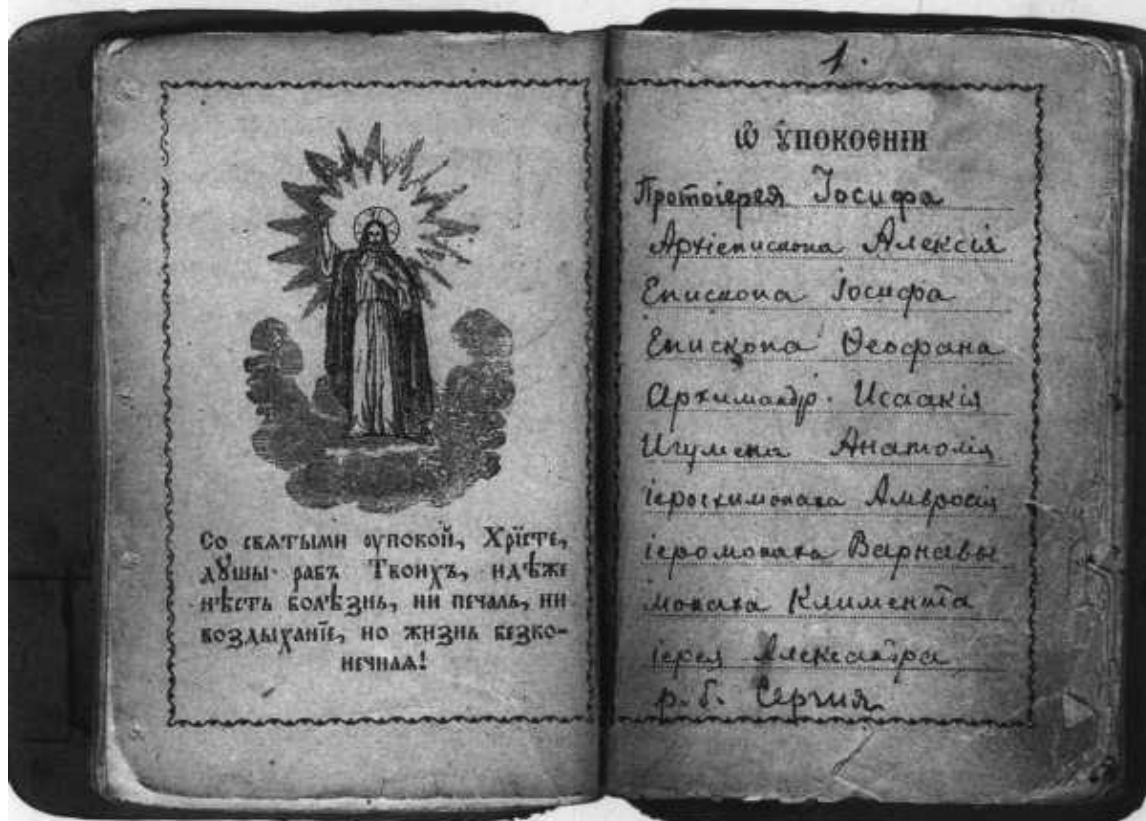 Со свѧтыми оупокой, Хрїсте,
дꙋшы рабъ Твоихъ, идѣже
нѣсть болѣзнь, ни печаль, ни
воздыханїе, но жизнь безко-
нечнаѧ!
1.
Ѡ ᲂу҆покоенїи
Протоіерея Іосифа
Архіепископа Алексія
Епископа Іосифа
Епископа Ѳеофана
Архимандр. Исаакія
Игумена Анатолія
іеросхимонаха Амвросія
іеромонаха Варнавы
монаха Климента
іерея Александра
р.б. Сергия